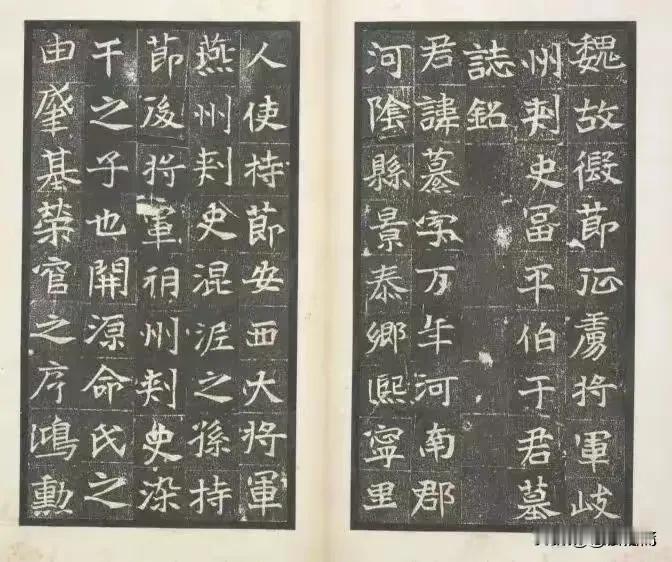 魏故假节征虏將軍岐
州刺史富平伯于君墓
誌銘
君諱纂字万年河南郡
河陰縣景泰鄉熙寧里
人使持節安西大將軍
燕州刺史混泥之孫持
節後將軍朔州刺史染
干之子也開源命氏之
由肇基榮官之序鴻勳